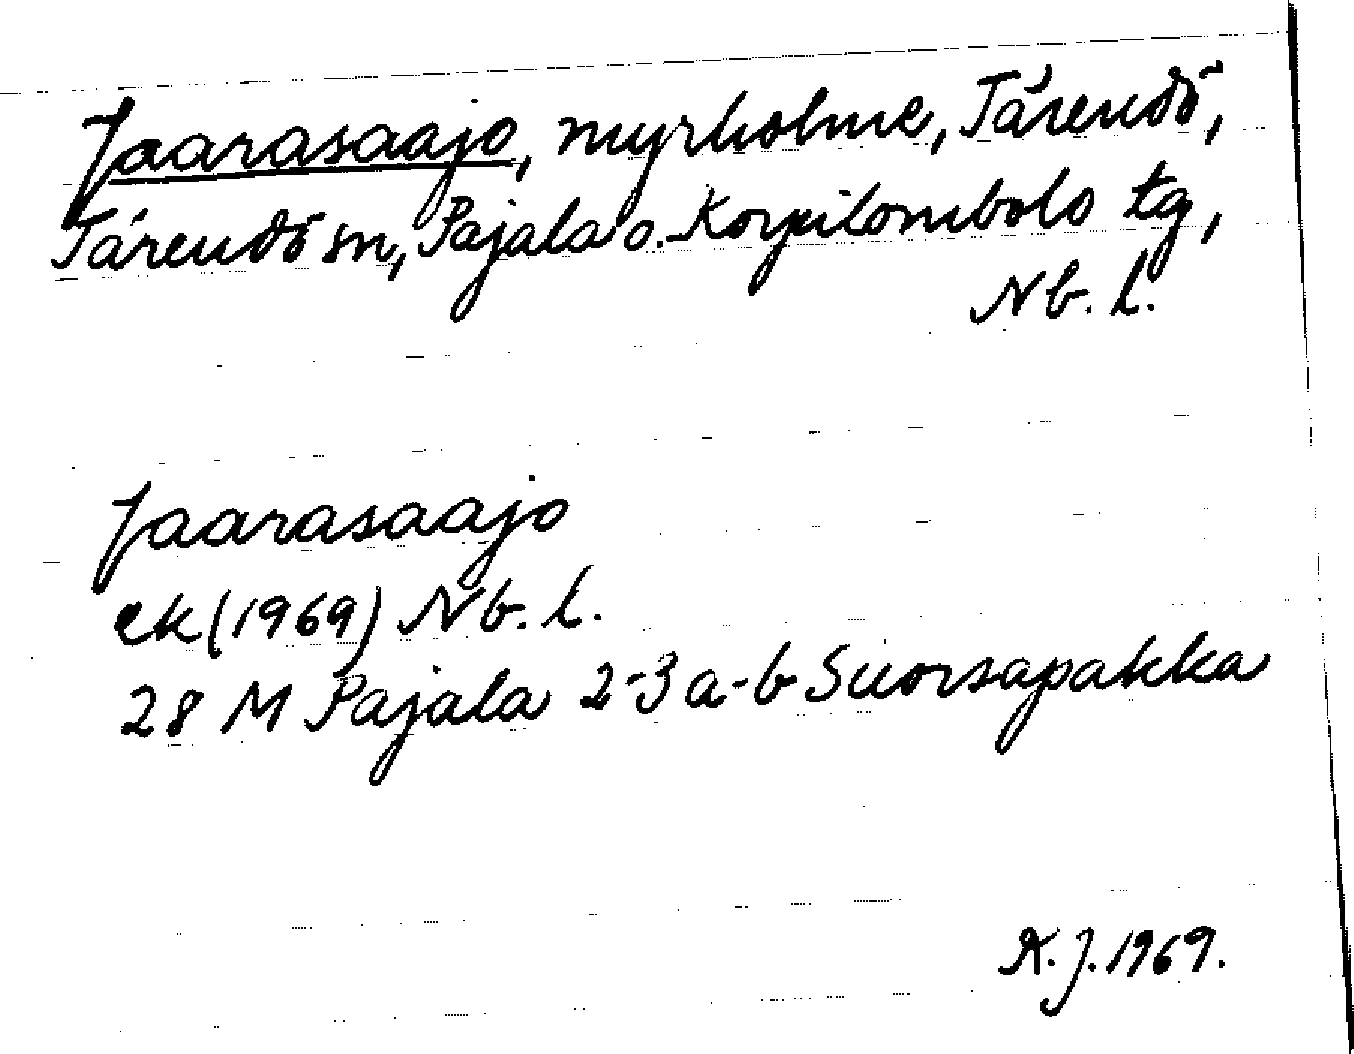 Jaarasaajo, myrholme, Tärendö,
Tärendö sn, Pajala o. Korpilombolo tg,
Nb. l.
Jaarasaajo
ek (1969) Nb. l.
28 M Pajala 2-3 a-b Suorsapakka
K. J. 1969.